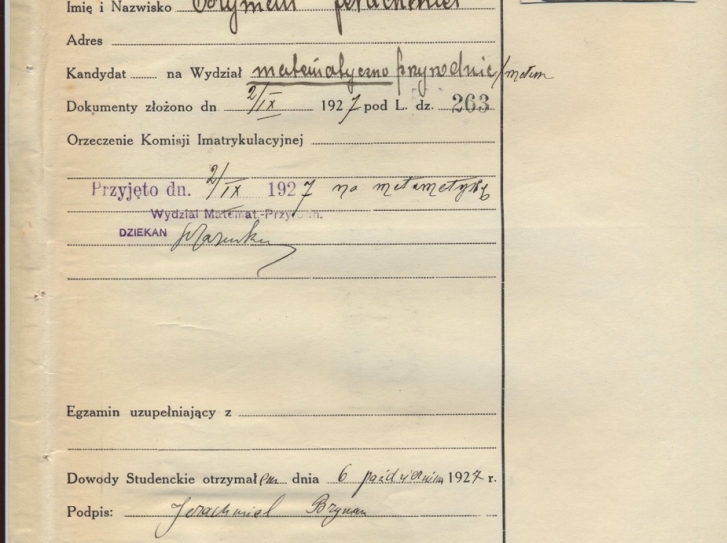 Imię i Nazwisko
Adres
Kandydat na Wydział matematyczno przyrodnic/matem
Dokumenty złożono dn 2/IX 1927 pod L. dz. 263
Orzeczenie Komisji Imatrykulacyjnej
Przyjęto dn. 2/IX 1927 na matematykę
Wydział Matemat.-Przyrodn.
DZIEKAN
Egzamin uzupełniający z
Dowody Studenckie otrzymałem dnia 6 października 1927 r.
Podpis: Jerachmiel Bryman